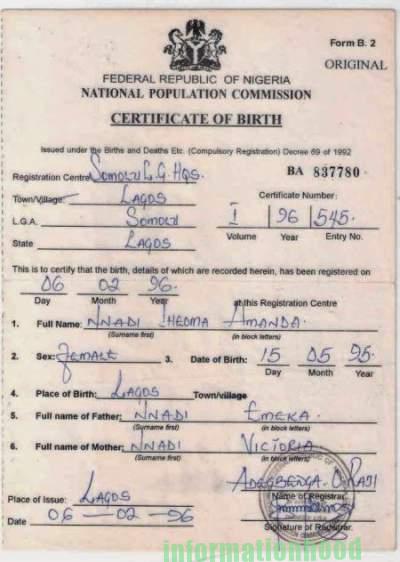 Form B. 2
ORIGINAL
FEDERAL REPUBLIC OF NIGERIA
NATIONAL POPULATION COMMISSION
CERTIFICATE OF BIRTH
Issued under the Births and Deaths Etc. (Compulsory Registration) Decree 69 of 1992
Registration Centre SOMOLU L.G. HQS. BA 837780
Town/Village: LAGOS Certificate Number:
L.G.A. SOMOLU I 96 545.
Volume Year Entry No.
State LAGOS
This is to certify that the birth, details of which are recorded herein, has been registered on
06 02 96. at this Registration Centre
Day Month Year
1. Full Name: NNADI IHEOMA AMANDA.
(Surname first) (in block letters)
2. Sex: FEMALE 3. Date of Birth: 15 05 95.
Day Month Year
4. Place of Birth: LAGOS Town/village
5. Full name of Father: NNADI EMEKA.
(Surname first) (in block letters)
6. Full name of Mother: NNADI VICTORIA
(Surname first) (in block letters)
ADEGBENGA O. RAJI
Place of Issue: LAGOS Name of Registrar
Date 06-02-96 Signature of Registrar
informationhood